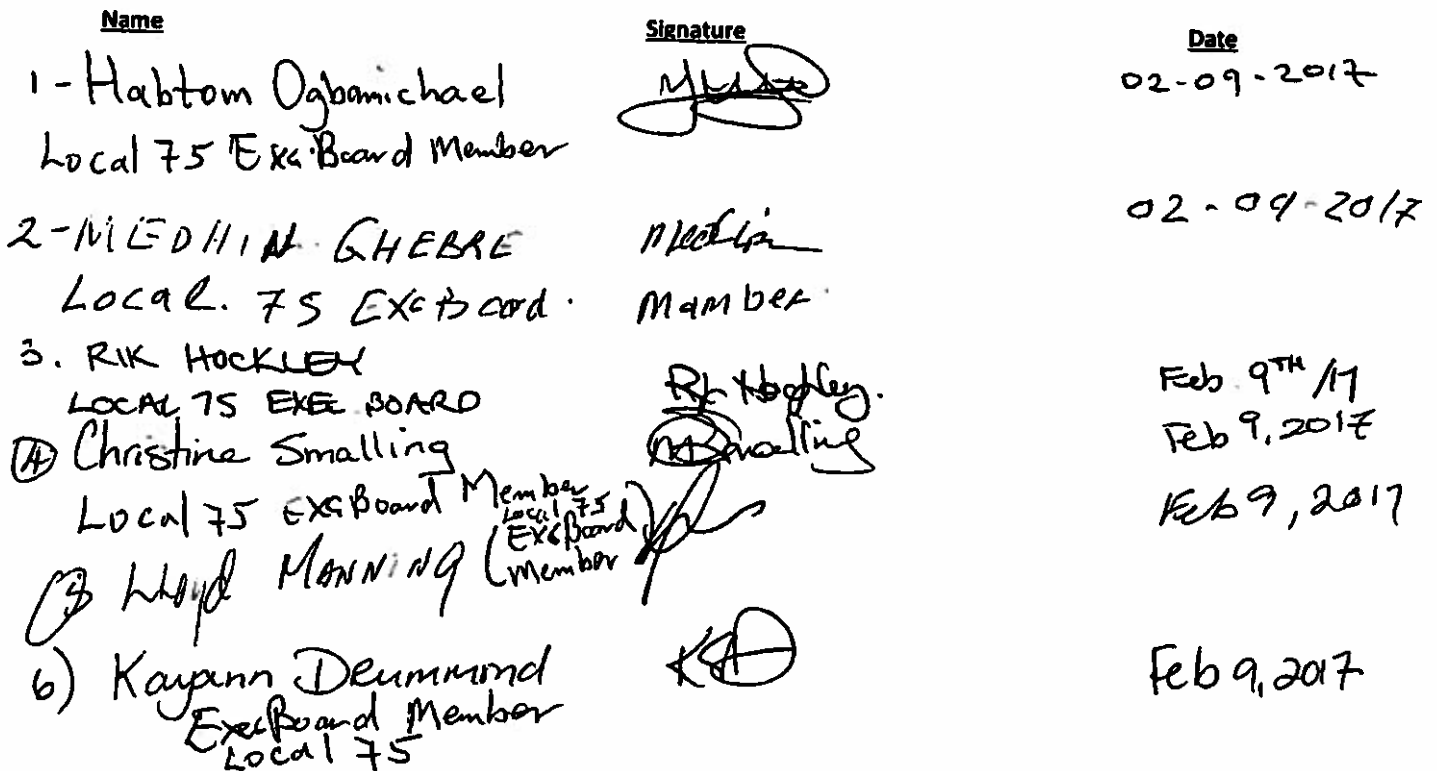 Name Signature Date
1 - Habtom Ogbamichael 02-09-2017
Local 75 Exc. Board Member
2 - MEDHIN GHEBRE Medhin 02-09-2017
Local. 75 Exc Board. Mamber.
3. RIK HOCKLEY Rik Hockley. Feb 9TH /17
LOCAL 75 EXEC BOARD
4 Christine Smalling Smalling Feb 9, 2017
Local 75 Exc Board Member
5 Lloyd MANNING (Local 75 Exc Board Member) Feb 9, 2017
6) Kayann Drummond Feb 9, 2017
Exec Board Member
Local 75